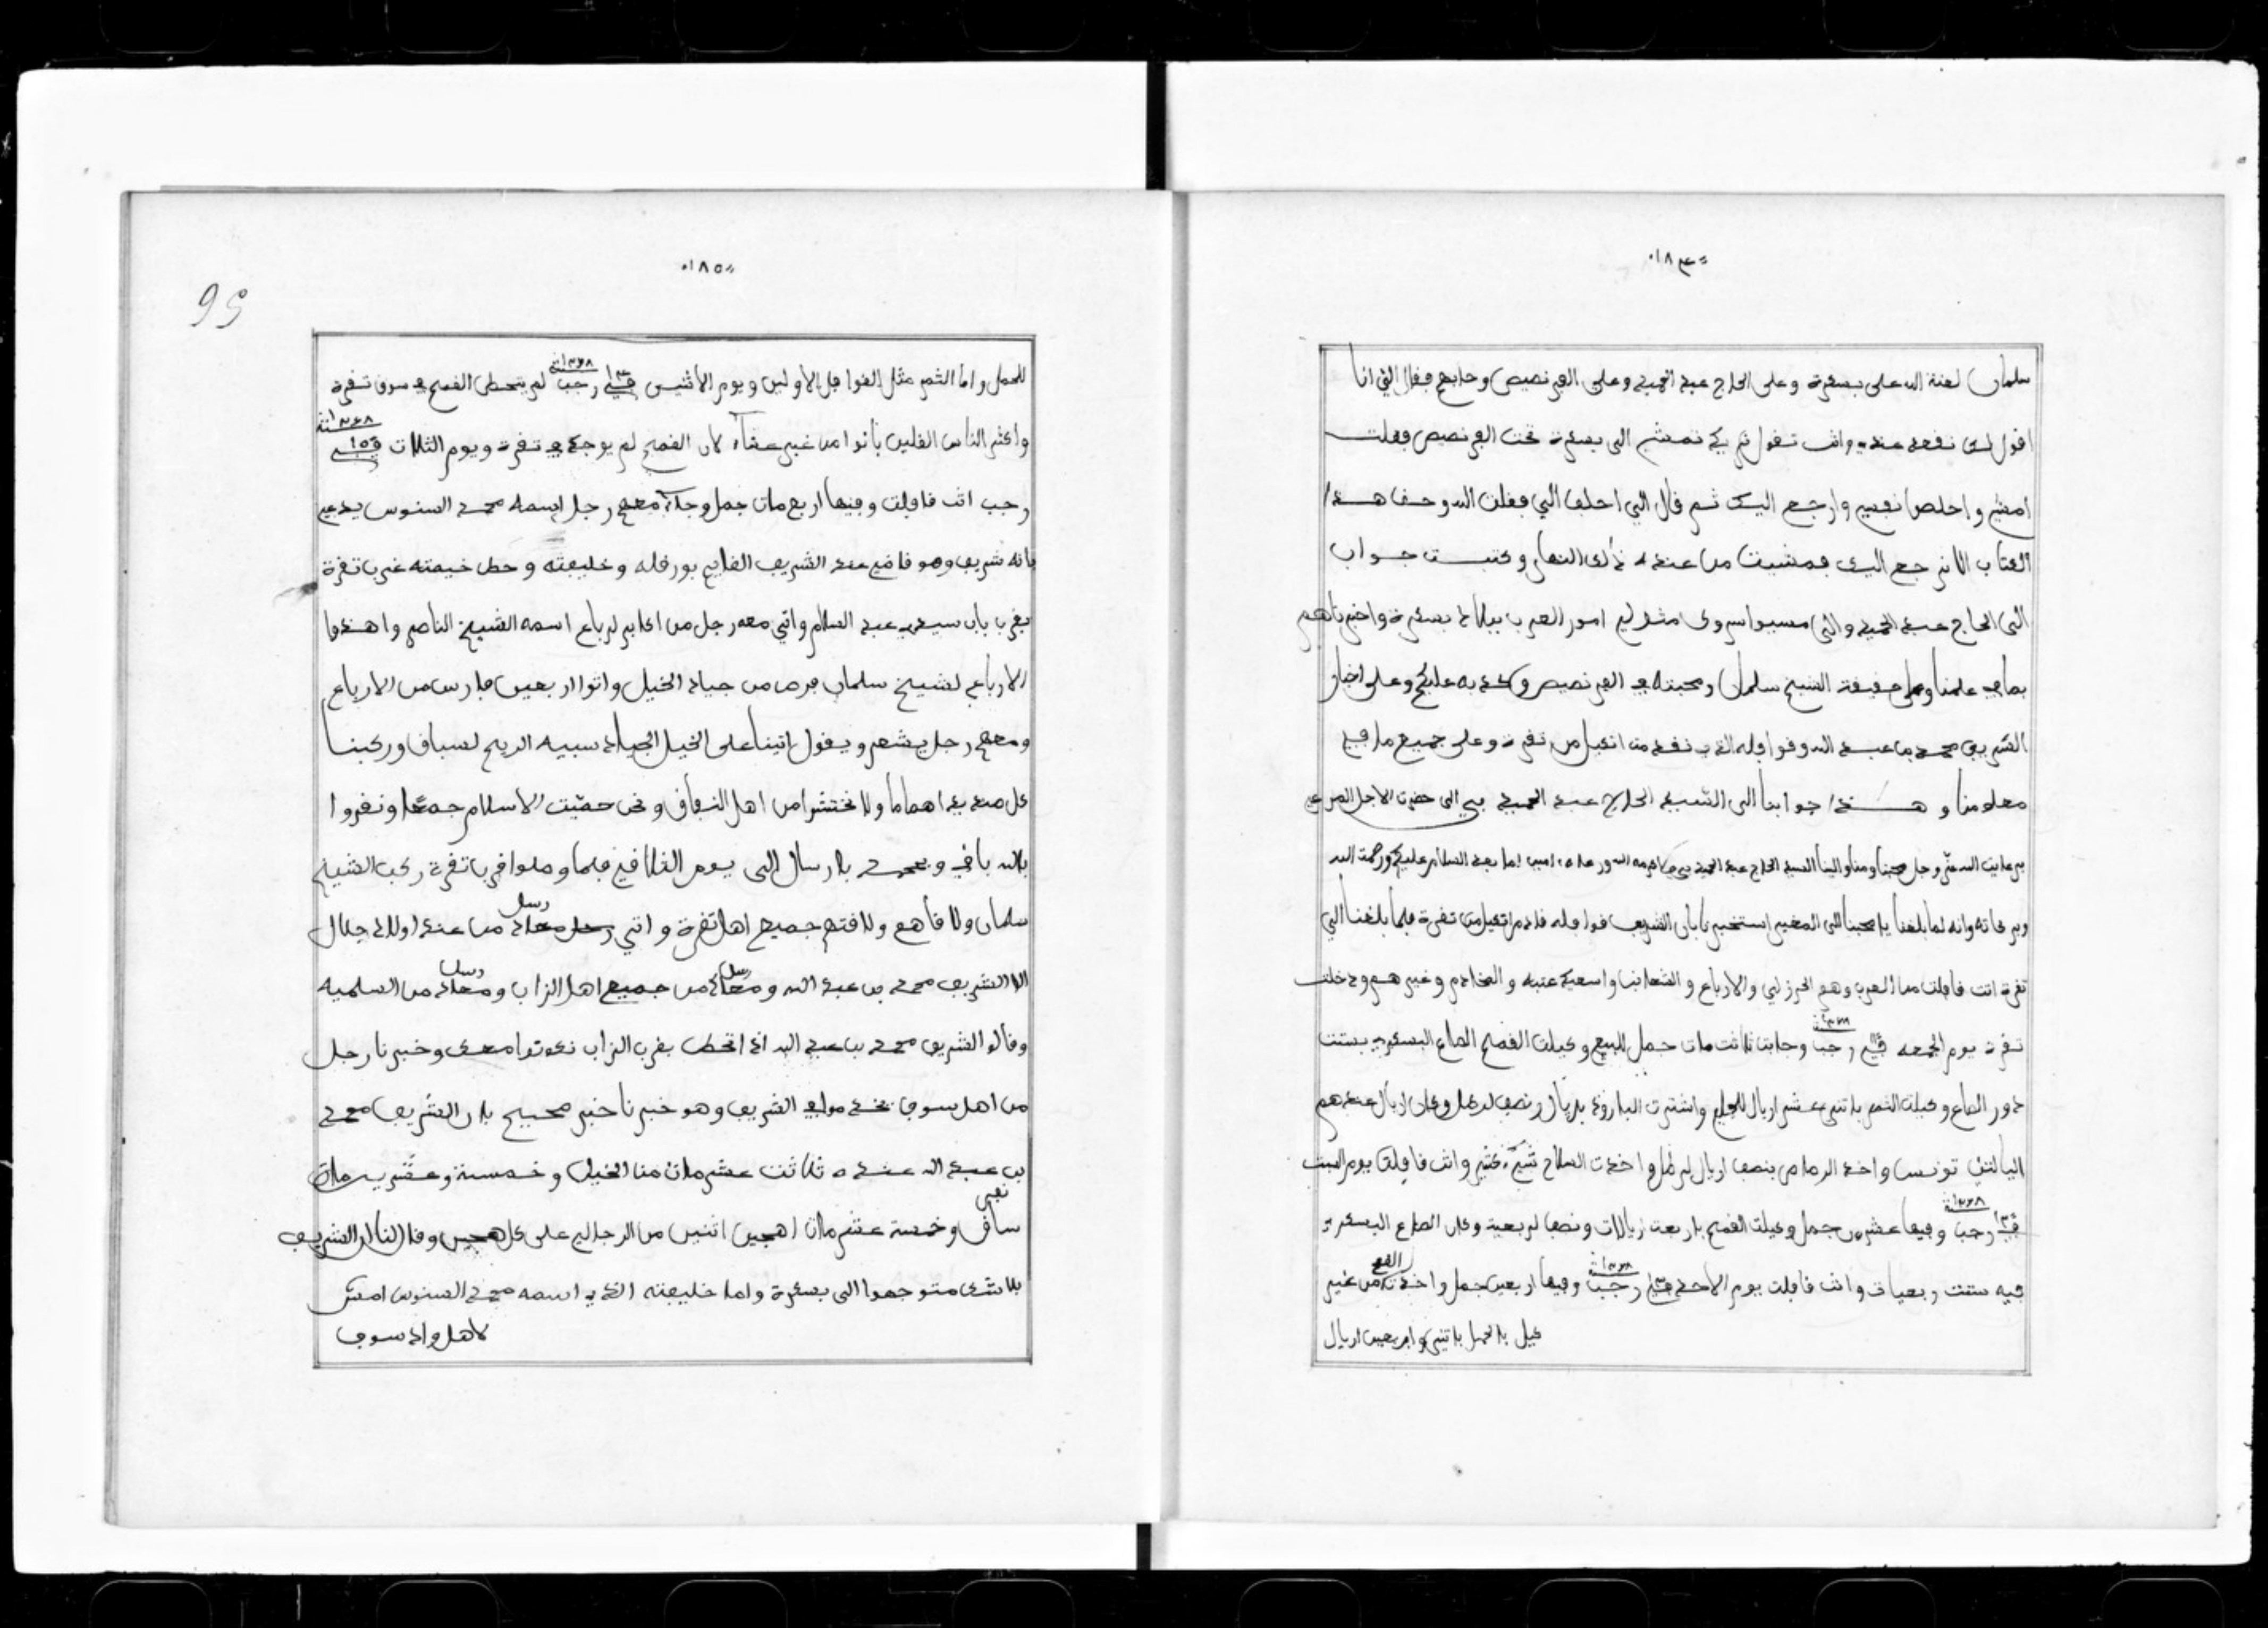 ١٨٤
سلمان لعنة الله على بسكرة وعلى الحاج عبد الحميد وعلى الفرنصيص وحابهم فقال الي انا
اقول لك نقعد عندي وانت تقول لي كي تمشي الى بسكرة تحت الفرنصيص فقلت
امشي واخلص نفسي وارجع اليك ثم قال الي احلف الي فقلت الله وحق هذا
الكتاب الا نرجع اليك فمشيت من عنده ذلك النهار وكتبت جواب
الى الحاج عبد الحميد والى مسيو اسروكا متولي امور العرب ببلاد بسكرة واخبرناهم
بما في علمنا وعلى حقيقة الشيخ سلمان ومحبته في الفرنصيص وكذبه عليكم وعلى اخبار
الشريف محمد بن عبد الله وقوافله الذي نقدمن اتكيل من تقرة وعلى جميع ما في
معلومنا وهذا جوابنا الى السيد الحاج عبد الحميد بي الى حضرت الاجل المرعي
برعايت الله عز وجل محبنا ومنا والينا السيد الحاج عبد الحميد بي اكرمه الله ورعاه امين اما بعد السلام عليكم ورحمت الله
وبركاته وانه لما بلغنا يا محبنا الى المغير استخبرنا بان الشريف قوافله قادم اتكيل من تقرة فلما بلغنا الي
تقرة اتت قافلت من العرب وهم الحرزلي والارباع والشعانب واسعيد عتبه والمخادم وغيرهم ودخلت
تقرة يوم الجمعه في رجب ١٢٦٨ وجابت ثلاثت مات جمل للبيع وكيلت القمح الصاع البسكري بستت
دور الصاع وكيلت الثمر باثني عشر اريال للجمل واشترت البارود بريال ونصف لرطل وكان اريال عندهم
اليا لثني تونسي واخذ الرصاص بنصف اريال لرطل واخذت السلاح شيء كثير واتت قافلت يوم السبت
في رجب ١٢٦٨ وفيها عشرين جمل وكيلت القمح باربعت اريالات ونصف لربعية وكان الصاع البسكري
فيه ستت ربعيات واتت قافلت يوم الاحد في رجب ١٢٦٨ وفيها اربعين جمل واخذت القمح من غير
كيل بالحمل باثني واربعين اريال
١٨٥
56
للجمل واما الثمر مثل القوافل الاولين ويوم الاثنين في ١٤ رجب ١٢٦٨ لم يتحط القمح في سوق تقرة
واكثر الناس القلين باتوا من غير عشاء لان القمح لم يوجد في تقرة ويوم الثلاث في ١٥ ١٢٦٨
رجب اتت قافلت وفيها اربع مات جمل وجاء معهم رجل اسمه محمد السنوس يدعي
بانه شريف وهو قاضي عند الشريف القايم بورقله وخليفته وحط خيمته غرب تقرة
بقرب باب سيدي عبد السلام واتي معه رجل من اكابر لرباع اسمه الشيخ الناصر واهدوا
الارباع لشيخ سلمان فرص من جياد الخيل واتوا اربعين فارس من الارباع
ومعهم رجل يشعر ويقول اتينا على الخيل الجياد سبيه الريح لسباق وركبنا
كل صنديد اهماما ولا نختشوا من اهل النفاق ونحن حميت الاسلام جمعا ونفروا
بالله باقي ومحمد بارسال الى يوم التلاقي فلما وصلوا قرب تقرة ركب الشيخ
سلمان ولاقاهم ولاقتهم جميع اهل تقرة واتي رسل من عند اولاد جلال
الا الشريف محمد بن عبد الله ورسل من جميع اهل الزاب ورسل من السلميه
وقالو الشريف محمد بن عبد الله اذا اتحط بقرب الزاب نكونوا معك وخبرنا رجل
من اهل سوف نخدم مولاي الشريف وهو خبرنا خبر صحيح بان الشريف محمد
بن عبد الله عنده ثلاثت عشر مات من الخيل وخمسة وعشرين مات
ساق نعي وخمسة عشر مات اهجين اثنين من الرجالي على كل هجين وقال لنا ان الشريف
بلا شك متوجهوا الى بسكرة واما خليفته الذي اسمه محمد السنوس امشى
لاهل واد سوف